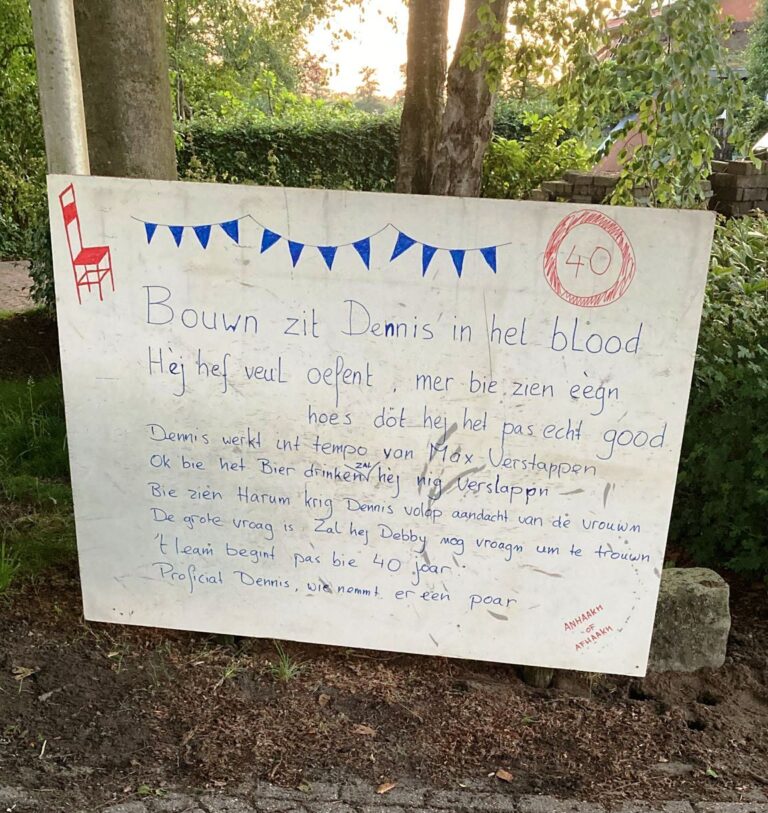 40
Bouwn zit Dennis in het blood
Hej hef veul oefent, mer bie zien eègn
hoes döt hej het pas echt good
Dennis werkt int tempo van Max Verstappen
Ok bie het Bier drinken ZAL hèj nig verslappn
Bie zien Harum krig Dennis volop aandacht van de vrouwn
De grote vraag is Zal hej Debby nog vroagn um te trouwn
't leam begint pas bie 40 joar
Proficiat Dennis, wie nemmt er een poar
ANHAAKN
OF
AFHAAKN